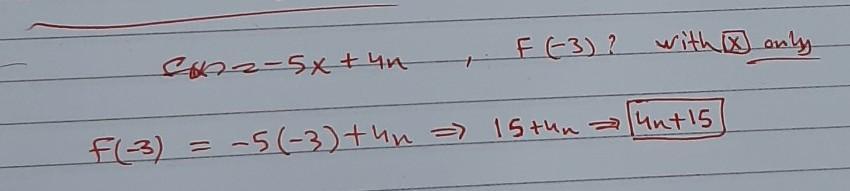 f(x) = -5x + 4n , F(-3)? with x only
F(-3) = -5(-3) + 4n ⇒ 15 + 4n ⇒ 4n + 15